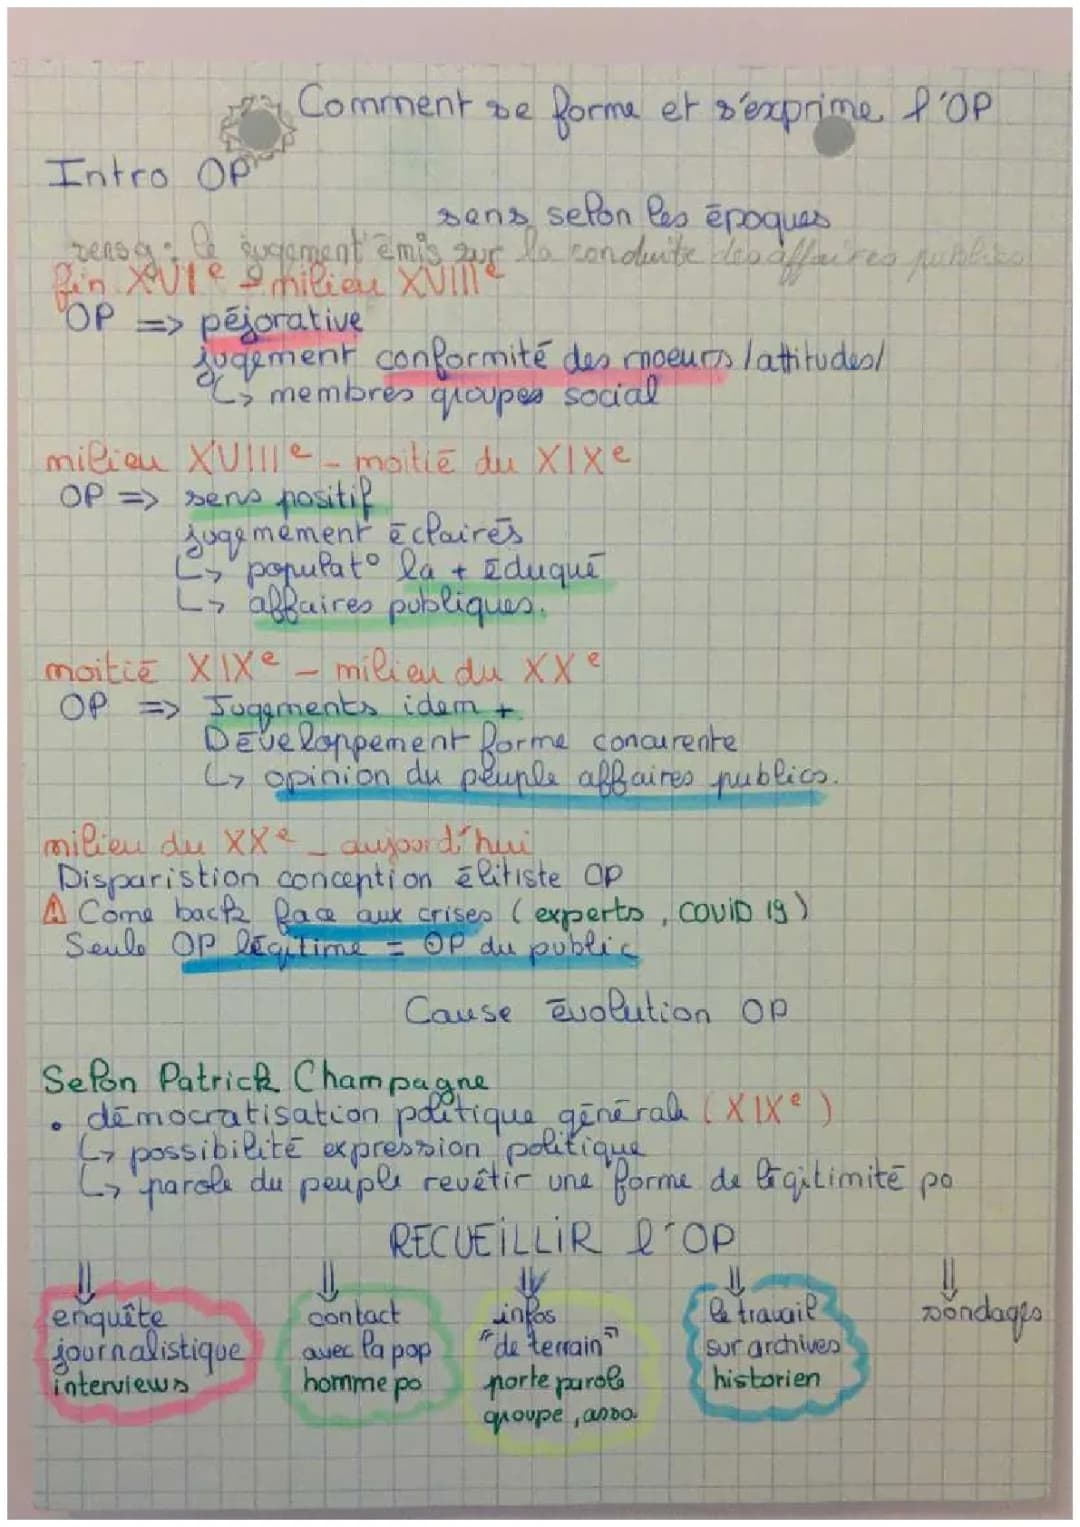 Comment se forme et s'exprime l'OP
Intro OP
sens selon les époques
sens g : le jugement émis sur la conduite des affaires publics
fin XVIe - milieu XVIIIe
OP => péjorative
jugement conformité des moeurs / attitudes/
↳ membres groupes social
milieu XVIIIe - moitié du XIXe
OP => sens positif
jugemement éclairés
↳ populat° la + éduqué
↳ affaires publiques.
moitié XIXe - milieu du XXe
OP => Jugements idem +
Développement forme concurente
↳ opinion du peuple affaires publics.
milieu du XXe - aujourd'hui
Disparistion conception élitiste OP
⚠ Come back face aux crises (experts, COVID 19)
Seule OP légitime = OP du public
Cause évolution OP
Selon Patrick Champagne
• démocratisation politique générale (XIXe)
↳ possibilité expression politique
↳ parole du peuple revêtir une forme de légitimité po
RECUEILLIR l'OP
⇓ ⇓ ⇓ ⇓ ⇓
enquête contact infos le travail sondages
journalistique avec la pop "de terrain" sur archives
interviews homme po porte parole historien
groupe, asso